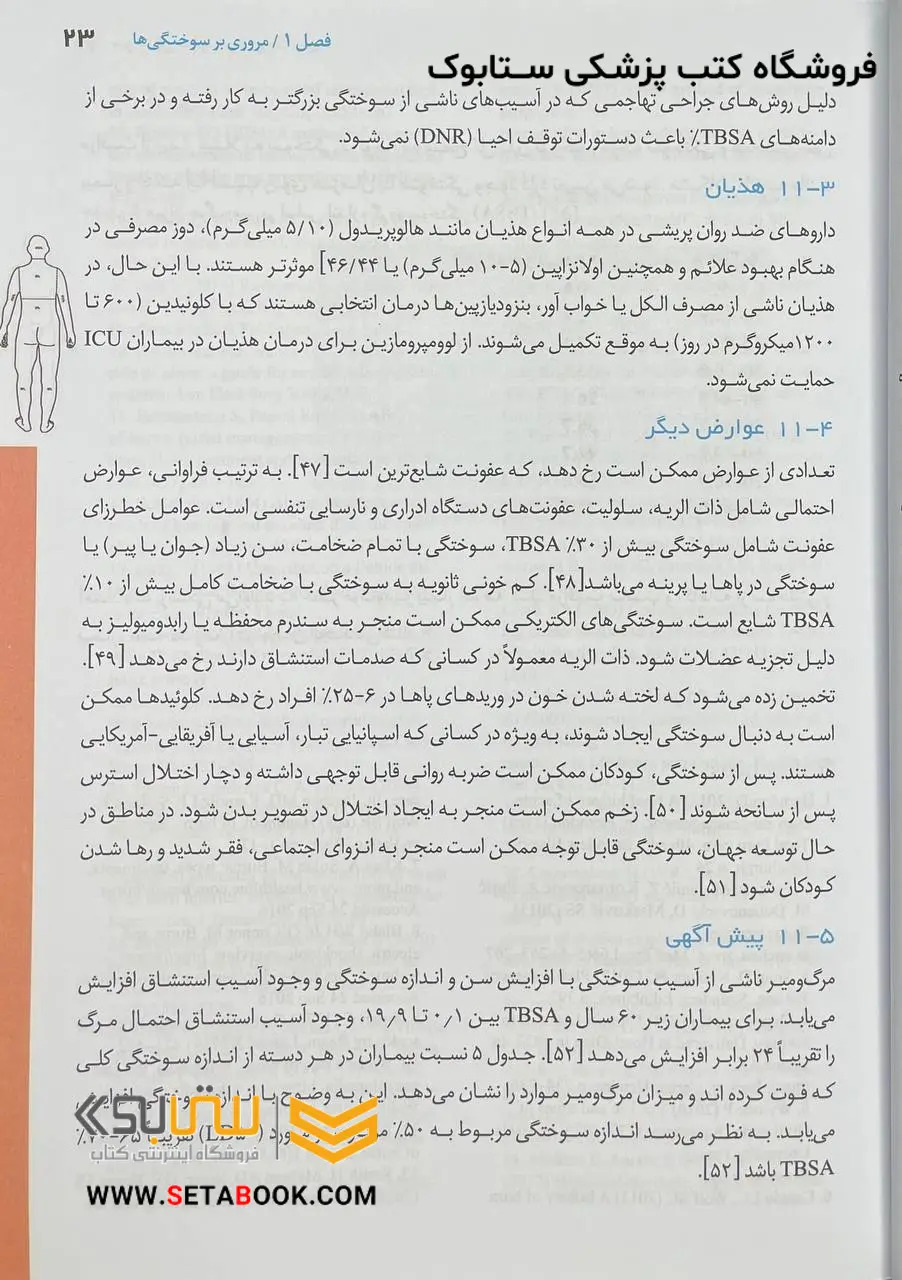 فصل ۱ / مروری بر سوختگی‌ها ۲۳
فروشگاه کتب پزشکی ستابوک
دلیل روش‌های جراحی تهاجمی که در آسیب‌های ناشی از سوختگی بزرگتر به کار رفته و در برخی از
دامنه‌های TBSA٪ باعث دستورات توقف احیا (DNR) نمی‌شود.
۱۱-۳ هذیان
داروهای ضد روان پریشی در همه انواع هذیان مانند هالوپریدول (۵/۱۰ میلی‌گرم)، دوز مصرفی در
هنگام بهبود علائم و همچنین اولانزاپین (۵-۱۰ میلی‌گرم) یا ۴۶/۴۴] موثرتر هستند. با این حال، در
هذیان ناشی از مصرف الکل یا خواب آور، بنزودیازپین‌ها درمان انتخابی هستند که با کلونیدین (۶۰۰ تا
۱۲۰۰میکروگرم در روز) به موقع تکمیل می‌شوند. از لوومپرومازین برای درمان هذیان در بیماران ICU
حمایت نمی‌شود.
۱۱-۴ عوارض دیگر
تعدادی از عوارض ممکن است رخ دهد، که عفونت شایع‌ترین است [۴۷]. به ترتیب فراوانی، عوارض
احتمالی شامل ذات الریه، سلولیت، عفونت‌های دستگاه ادراری و نارسایی تنفسی است. عوامل خطرزای
عفونت شامل سوختگی بیش از ۳۰٪ TBSA، سوختگی با تمام ضخامت، سن زیاد (جوان یا پیر) یا
سوختگی در پاها یا پرینه می‌باشد[۴۸]. کم خونی ثانویه به سوختگی با ضخامت کامل بیش از ۱۰٪
TBSA شایع است. سوختگی‌های الکتریکی ممکن است منجر به سندرم محفظه یا رابدومیولیز به
دلیل تجزیه عضلات شود. ذات الریه معمولاً در کسانی که صدمات استنشاق دارند رخ می‌دهد [۴۹].
تخمین زده می‌شود که لخته شدن خون در وریدهای پاها در ۶-۲۵٪ افراد رخ دهد. کلوئیدها ممکن
است به دنبال سوختگی ایجاد شوند، به ویژه در کسانی که اسپانیایی تبار، آسیایی یا آفریقایی-آمریکایی
هستند. پس از سوختگی، کودکان ممکن است ضربه روانی قابل توجهی داشته و دچار اختلال استرس
پس از سانحه شوند [۵۰]. زخم ممکن است منجر به ایجاد اختلال در تصویر بدن شود. در مناطق در
حال توسعه جهان، سوختگی قابل توجه ممکن است منجر به انزوای اجتماعی، فقر شدید و رها شدن
کودکان شود [۵۱].
۱۱-۵ پیش آگهی
مرگ‌ومیر ناشی از آسیب سوختگی با افزایش سن و اندازه سوختگی و وجود آسیب استنشاق افزایش
می‌یابد. برای بیماران زیر ۶۰ سال و TBSA بین ۰٫۱ تا ۱۹٫۹، وجود آسیب استنشاق احتمال مرگ
را تقریباً ۲۴ برابر افزایش می‌دهد [۵۲]. جدول ۵ نسبت بیماران در هر دسته از اندازه سوختگی کلی
که فوت کرده اند و میزان مرگ‌ومیر موارد را نشان می‌دهد. این به وضوح با اندازه سوختگی افزایش
می‌یابد. به نظر می‌رسد اندازه سوختگی مربوط به ۵۰٪ تقریباً ۶۵-۷۰٪
TBSA باشد [۵۲].
ستابوک
فروشگاه اینترنتی کتاب
WWW.SETABOOK.COM